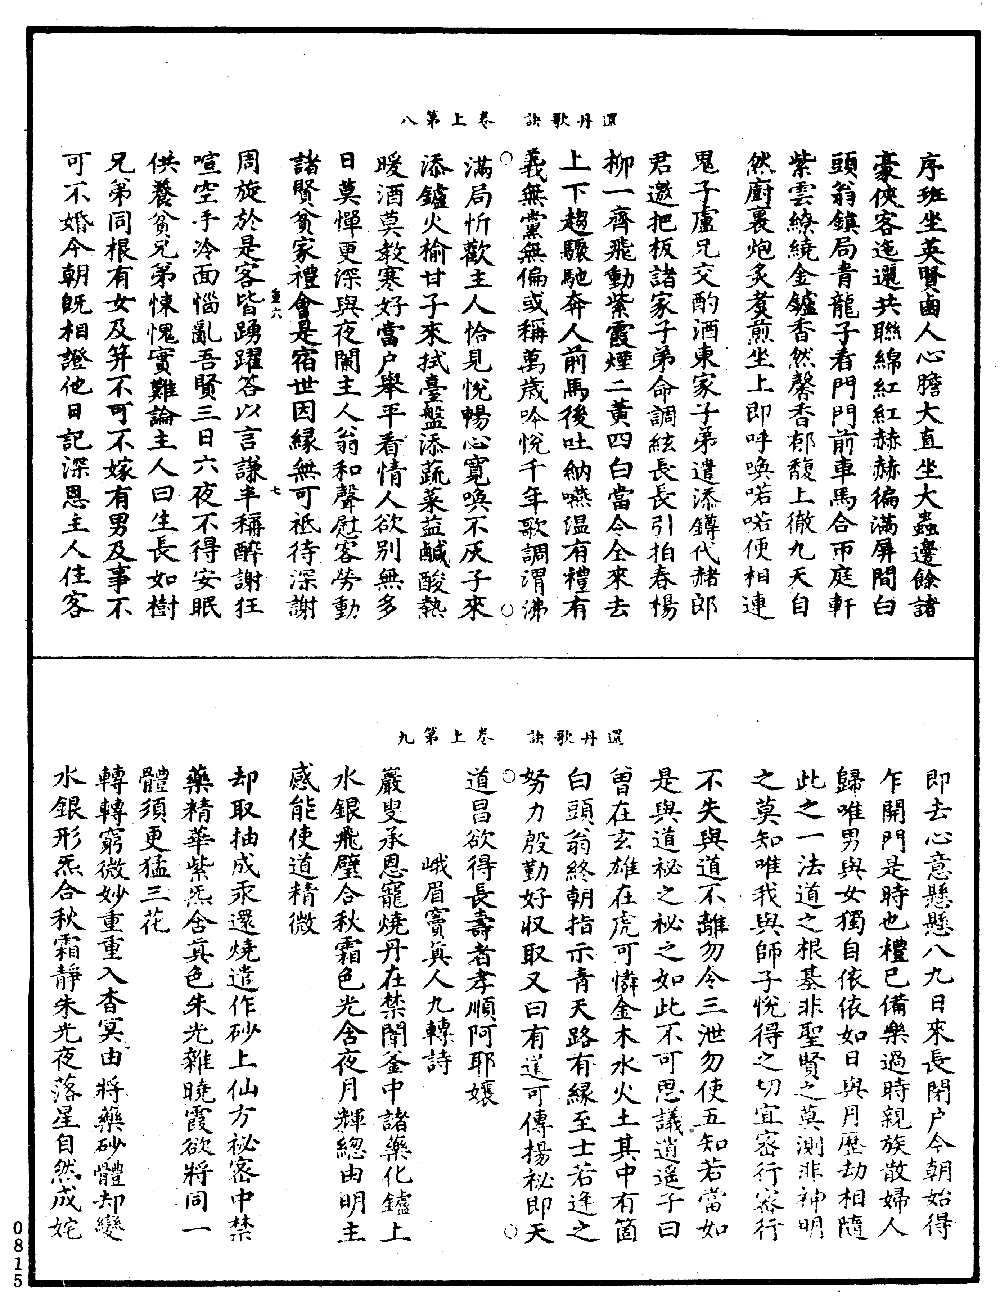 還丹歌訣　卷上第八
序班坐英賢鹵人心膽大直坐大蟲邊餘諸
豪俠客迤邐共聯綿紅紅赫赫徧滿屏間白
頭翁鎮局青龍子看門門前車馬合帀庭軒
紫雲繚繞金鑪香然馨香郁馥上徹九天自
然廚裏炮炙煑煎坐上即呼喚喏喏便相連
鬼子盧兄交酌酒東家子弟遣添鐏代赭郎
君邀把板諸家子弟命調絃長長引拍春楊
柳一齊飛動紫霞煙二黃四白當令全來去
上下趨驟馳奔人前馬後吐納嚥温有禮有
義無黨無偏或稱萬歲吟悅千年歌調渭沸
滿局忻歡主人恰見悅暢心寬喚不灰子來
添鑪火榆甘子來拭臺盤添蔬菜益鹹酸熱
暖酒莫教寒好當户舉平看情人欲别無多
日莫憚更深與夜闌主人翁和聲慰客勞動
諸賢貧家禮會是宿世因緣無可祗待深謝
周旋於是客皆踴躍荅以言謙半稱醉謝狂
喧空手冷面惱亂吾賢三日六夜不得安眠
供養貧兄弟悚愧實難論主人曰生長如樹
兄弟同根有女及笄不可不嫁有男及事不
可不婚今朝旣相證他日記深恩主人住客
重六
七
還丹歌訣　卷上第九
即去心意懸懸八九日來長閉户今朝始得
乍開門是時也禮已備樂過時親族散婦人
歸唯男與女獨自依依如日與月歷劫相隨
此之一法道之根基非聖賢之莫測非神明
之莫知唯我與師子悅得之切宜密行密行
不失與道不離勿令三泄勿使五知若當如
是與道祕之祕之如此不可思議逍遥子曰
曾在玄雄在虎可憐金木水火土其中有箇
白頭翁終朝指示青天路有緣至士若逢之
努力殷勤好收取又曰有道可傳揚祕即天
道昌欲得長壽者孝順阿耶孃
峨眉竇真人九轉詩
嚴叟承恩寵燒丹在禁闈釜中諸藥化鑪上
水銀飛璧合秋霜色光含夜月輝緫由明主
感能使道精微
却取抽成汞還燒造作砂上仙方祕密中禁
藥精華紫炁含真色朱光雜曉霞欲將同一
體須更猛三花
轉轉窮微妙重重入杳冥由將藥砂體却變
水銀形炁合秋霜靜朱光夜落星自然成姹
0815